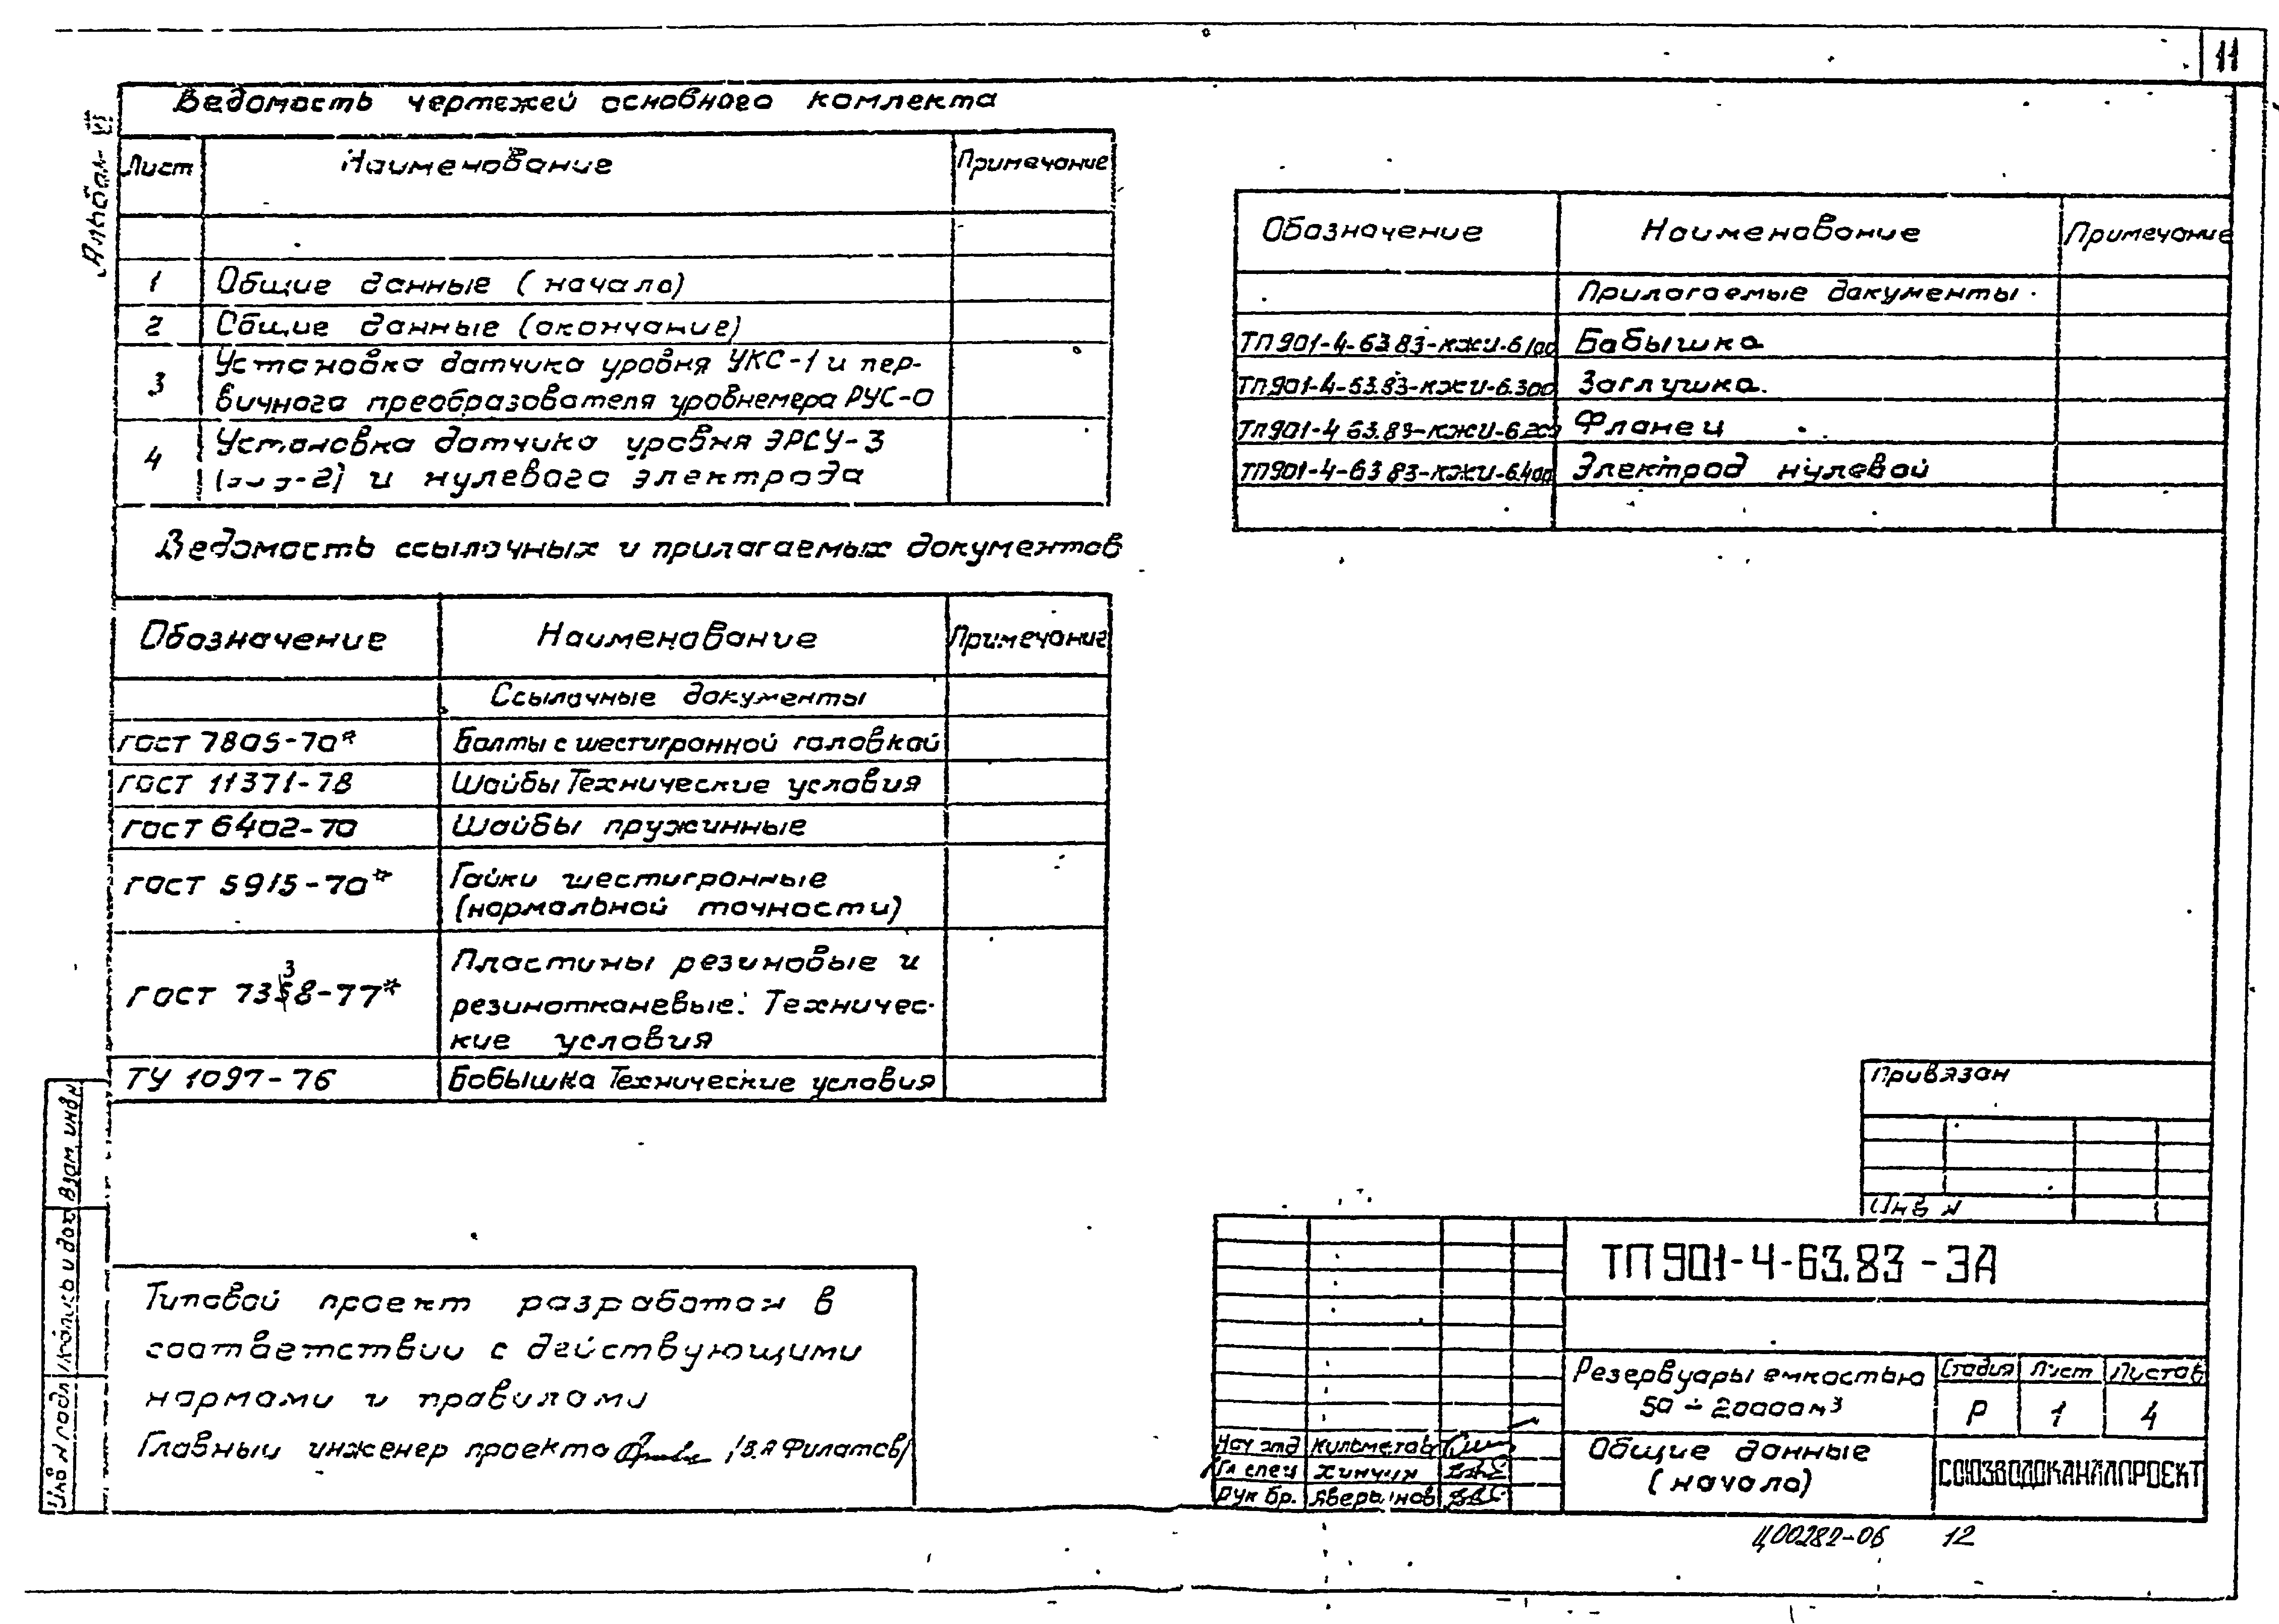 11
Альбом VI
Ведомость чертежей основного комлекта
Лист Наименование Примечание
1 Общие данные (начало)
2 Общие данные (окончание)
3 Установка датчика уровня УКС-1 и пер-
вичного преобразователя уровнемера РУС-0
4 Установка датчика уровня ЭРСУ-3
и нулевого электрода
Ведомость ссылочных и прилагаемых документов
Обозначение Наименование Примечание
Ссылочные документы
ГОСТ 7805-70* Болты с шестигранной головкой
ГОСТ 11371-78 Шайбы Технические условия
ГОСТ 6402-70 Шайбы пружинные
ГОСТ 5915-70* Гайки шестигранные
(нормальной точности)
ГОСТ 7338-77* Пластины резиновые и
резинотканевые. Техничес-
кие условия
ТУ 1097-76 Бобышка Технические условия
Обозначение Наименование Примечание
Прилагаемые документы
ТП901-4-63.83-КЖИ-6.100 Бобышка
ТП901-4-63.83-КЖИ-6.300 Заглушка
ТП901-4-63.83-КЖИ-6.200 Фланец
ТП901-4-63.83-КЖИ-6.400 Электрод нулевой
Типовой проект разработан в
соответствии с действующими
нормами и правилами
Главный инженер проекта /В.Я Филатов/
Взам инв н
Подпись и дата
Инв N подл
Привязан
Инв N
ТП901-4-63.83-ЭА
Резервуары емкостью
50 ÷ 20000 м³
Стадия Лист Листов
Р 1 4
Общие данные
(начало)
СОЮЗВОДОКАНАЛПРОЕКТ
Нач отд
Гл спец Хинчин
Рук бр.
Ц00282-06 12